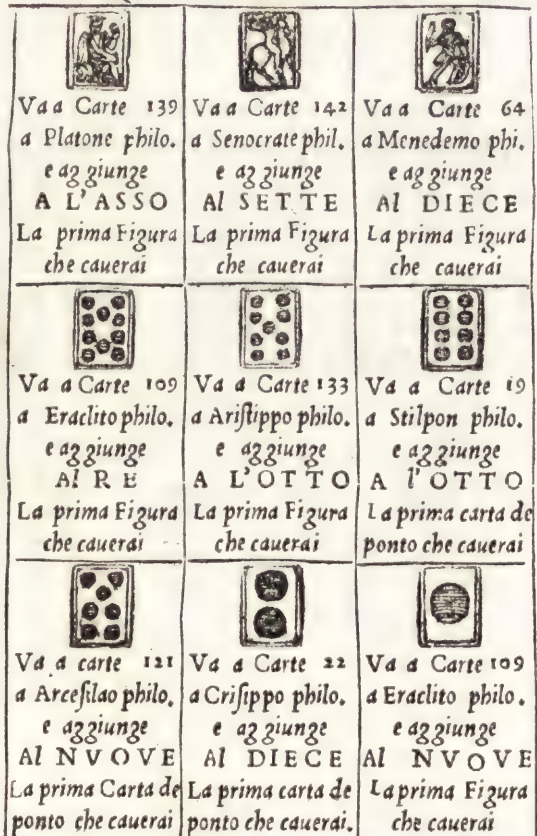 Va a Carte 139
a Platone philo.
e aggiunge
A L'ASSO
La prima Figura
che cauerai
Va a Carte 142
a Senocrate phil.
e aggiunge
Al SETTE
La prima Figura
che cauerai
Va a Carte 64
a Menedemo phi.
e aggiunge
Al DIECE
La prima Figura
che cauerai
Va a Carte 109
a Eraclito philo.
e aggiunge
Al RE
La prima Figura
che cauerai
Va a Carte 133
a Ariſtippo philo.
e aggiunge
A L'OTTO
La prima Figura
che cauerai
Va a Carte 19
a Stilpon philo.
e aggiunge
A l'OTTO
La prima carta de
ponto che cauerai
Va a carte 121
a Arceſilao philo.
e aggiunge
Al NVOVE
La prima Carta de
ponto che cauerai
Va a Carte 22
a Criſippo philo.
e aggiunge
Al DIECE
La prima carta de
ponto che cauerai.
Va a Carte 109
a Eraclito philo.
e aggiunge
Al NVOVE
La prima Figura
che cauerai